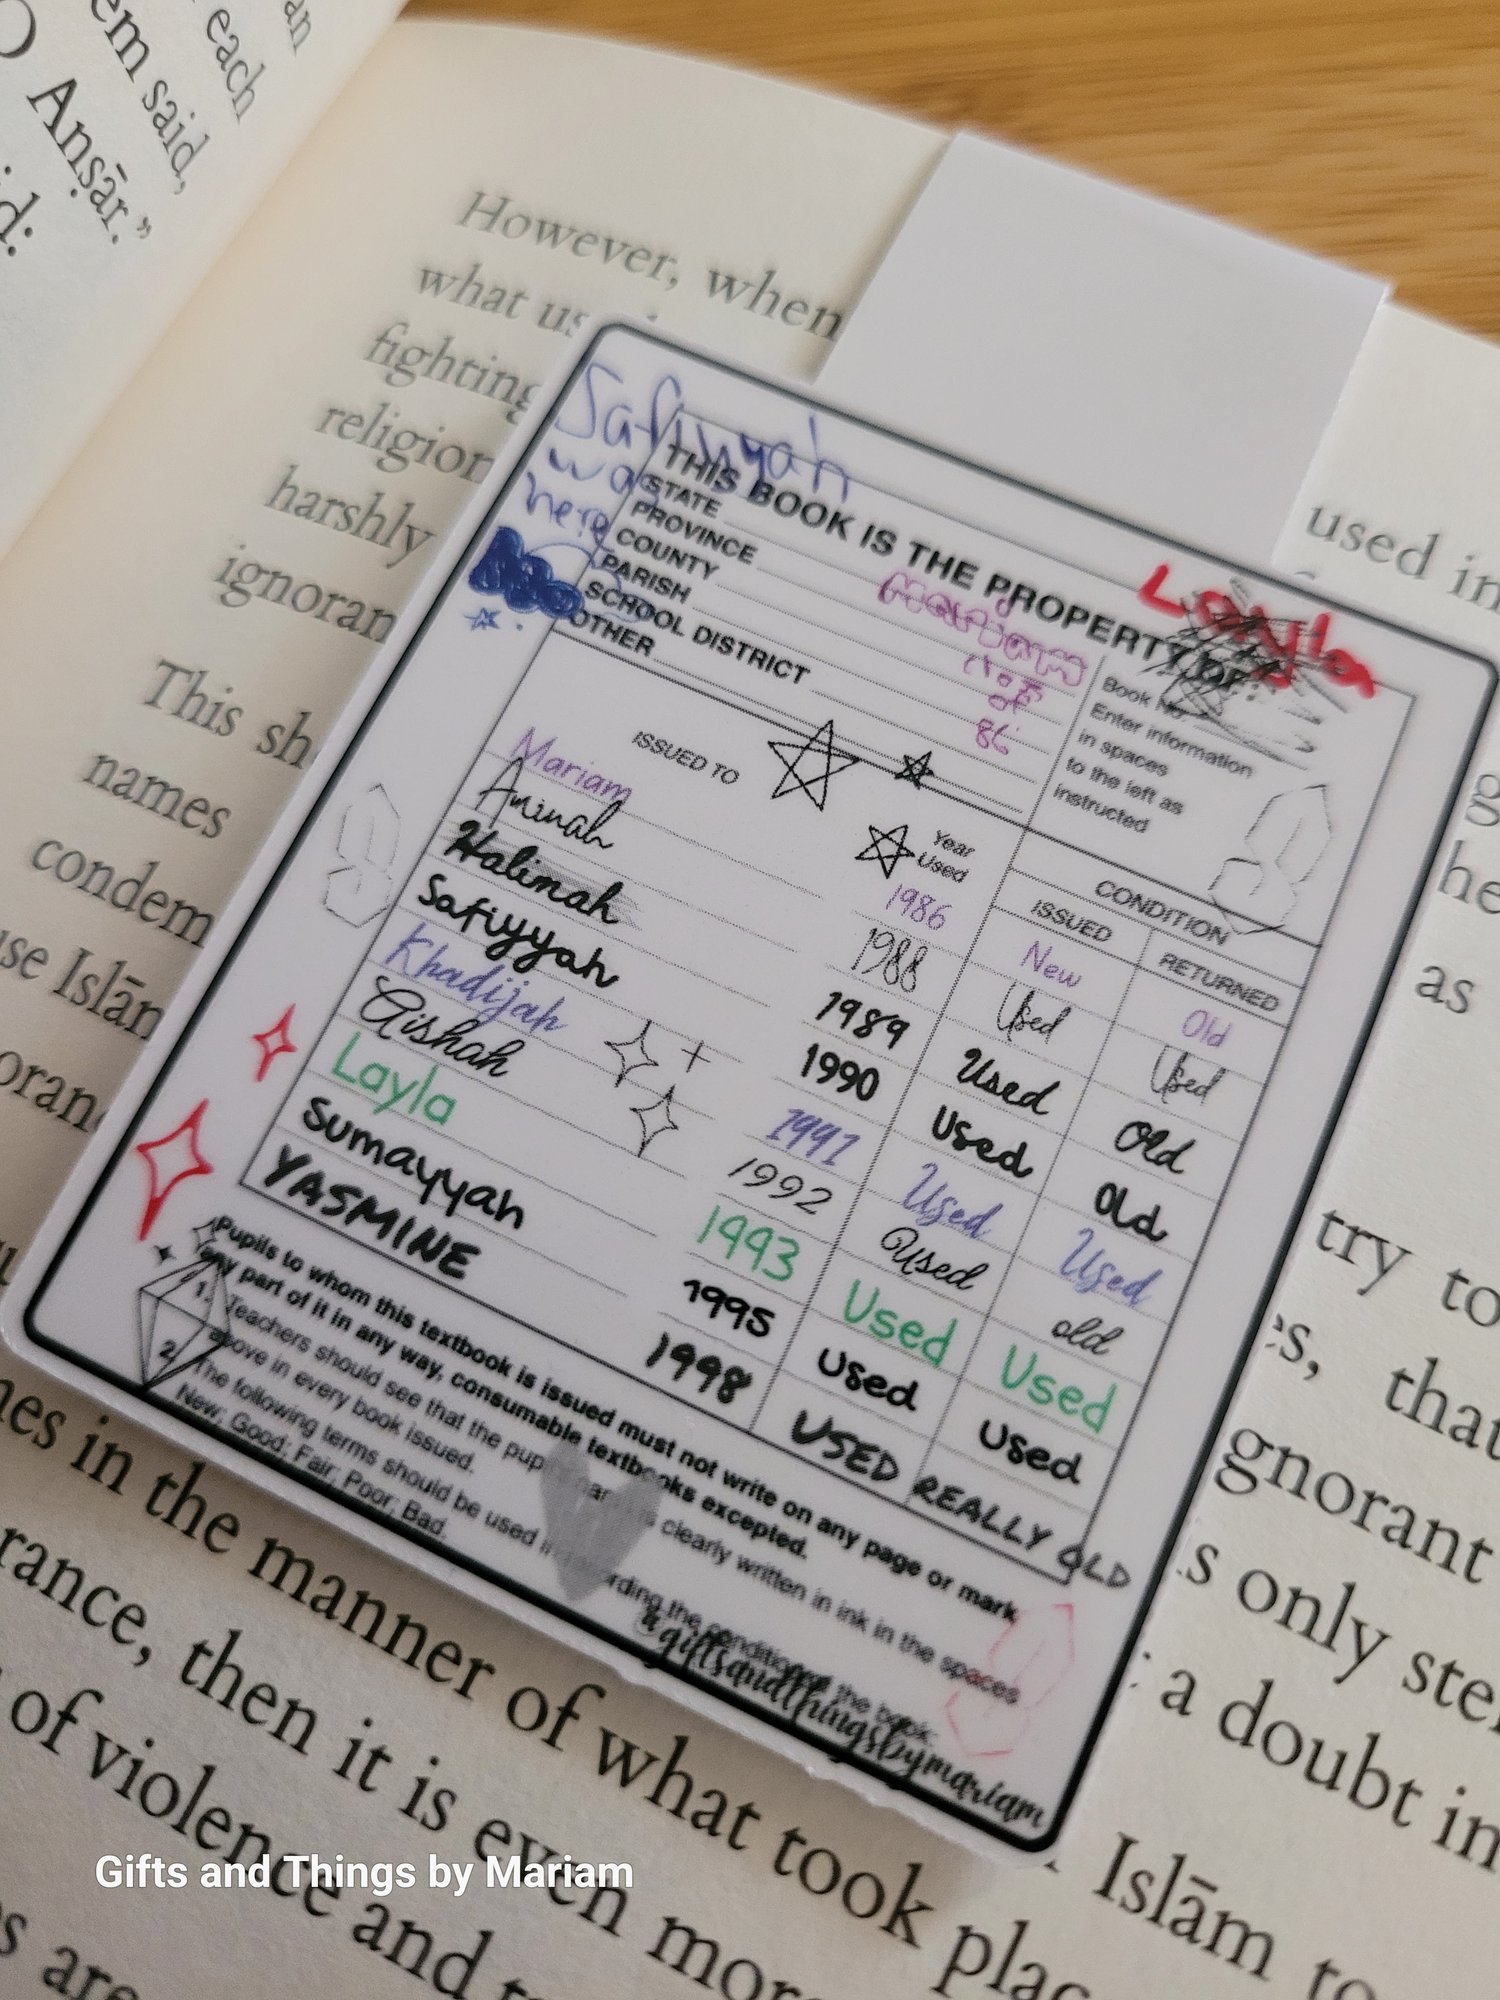 an
em said, each
Anṣār.”
id:
However, when
what us
fighting
religion
harshly
ignoran
This sh
names
condem
se Islān
oran
used in
he
as
try to
es, that
ignorant
s only ste
a doubt in
Islām to
nes in the manner of what took plac
rance, then it is even mor
of violence and t
s are
Safiyyah
was
here
THIS BOOK IS THE PROPERTY OF:
Layla
STATE
PROVINCE
COUNTY
PARISH
SCHOOL DISTRICT
OTHER
Mariam
of
86
Book No.
Enter information
in spaces
to the left as
instructed
ISSUED TO
Year Used
CONDITION
ISSUED
RETURNED
Mariam 1986 New Old
Aminah 1988 Used Used
Halimah 1989 Used Old
Safiyyah 1990 Used Old
Khadijah 1991 Used Used
Aishah 1992 Used old
Layla 1993 Used Used
Sumayyah 1995 Used Used
YASMINE 1998 USED REALLY OLD
Pupils to whom this textbook is issued must not write on any page or mark
any part of it in any way, consumable textbooks excepted.
1. Teachers should see that the pup clearly written in ink in the spaces
above in every book issued.
2. The following terms should be used rding the condition of the book:
New; Good; Fair; Poor; Bad.
@giftsandthingsbymariam
Gifts and Things by Mariam